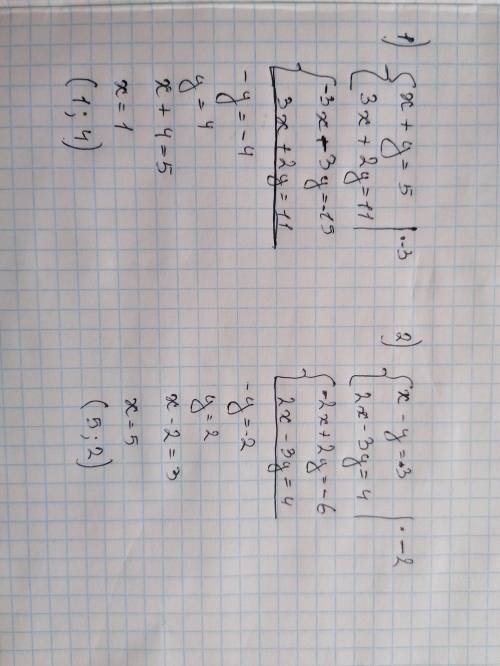 1) { x + y = 5 | · -3
{ 3x + 2y = 11
{ -3x - 3y = -15
{ 3x + 2y = 11
-y = -4
y = 4
x + 4 = 5
x = 1
(1; 4)
2) { x - y = 3 | · -2
{ 2x - 3y = 4
{ -2x + 2y = -6
{ 2x - 3y = 4
-y = -2
y = 2
x - 2 = 3
x = 5
(5; 2)